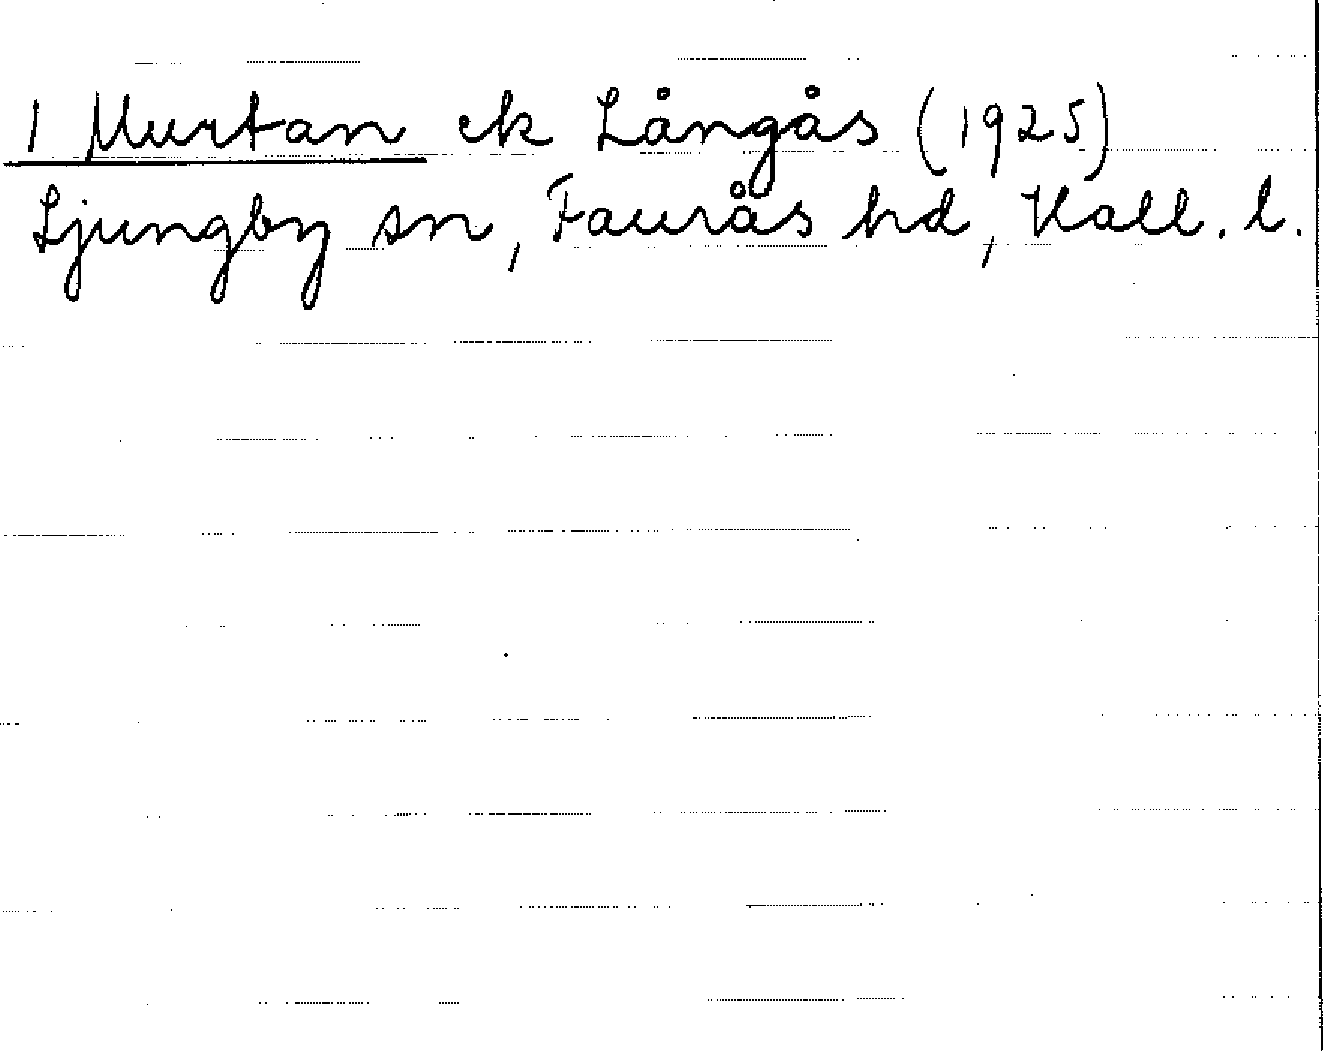 1 Murtan ek Långås (1925)
Ljungby sn, Faurås hd, Hall. l.